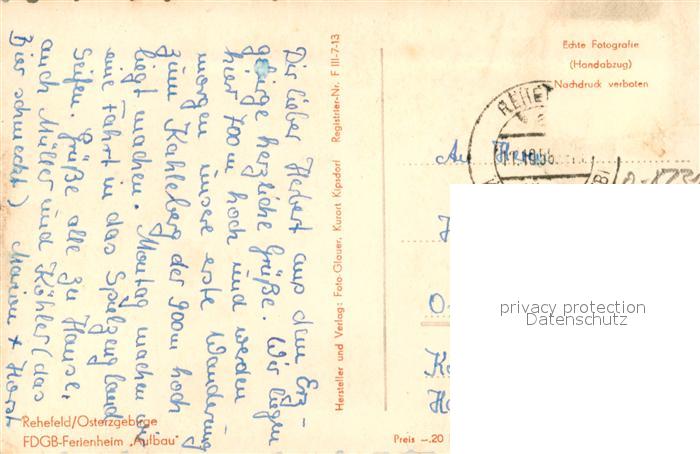 Dir lieber Herbert aus dem Erz-
gebirge herzliche Grüße. Wir liegen
hier 700m hoch und werden
morgen unsere erste Wanderung
zum Kahleberg der 900m hoch
liegt machen. Montag machen wir
eine Fahrt in das Spielzeugland
Seifen. Grüße alle zu Hause,
auch Müller und Köhler (das
Bier schmeckt) Marion + Horst
Rehefeld/Osterzgebirge
FDGB-Ferienheim „Aufbau"
Hersteller und Verlag: Foto-Glauer, Kurort Kipsdorf Registrier-Nr. F III-7-13
Echte Fotografie
(Handabzug)
Nachdruck verboten
REHE
.10.58
An Herrn
O-
Preis -.20
privacy protection
Datenschutz